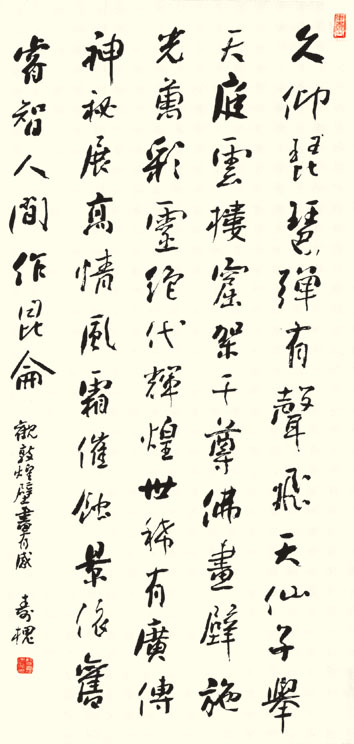 久仰琵琶弹有聲飛天仙子舉
天庭雲樓窟架千尊佛畫壁施
光萬彩靈絶代輝煌世稀有廣傳
神秘展高情風霜催蝕景依舊
睿智人間作昆侖
觀敦煌壁畫有感 壽槐